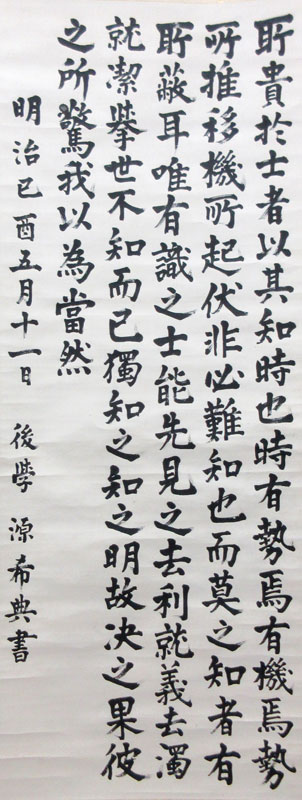 所貴於士者以其知時也時有勢焉有機焉勢
所推移機所起伏非必難知也而莫之知者有
所蔽耳唯有識之士能先見之去利就義去濁
就潔挙世不知而已獨知之知之明故决之果彼
之所驚我以為當然
明治已酉五月十一日 後學 源希典書